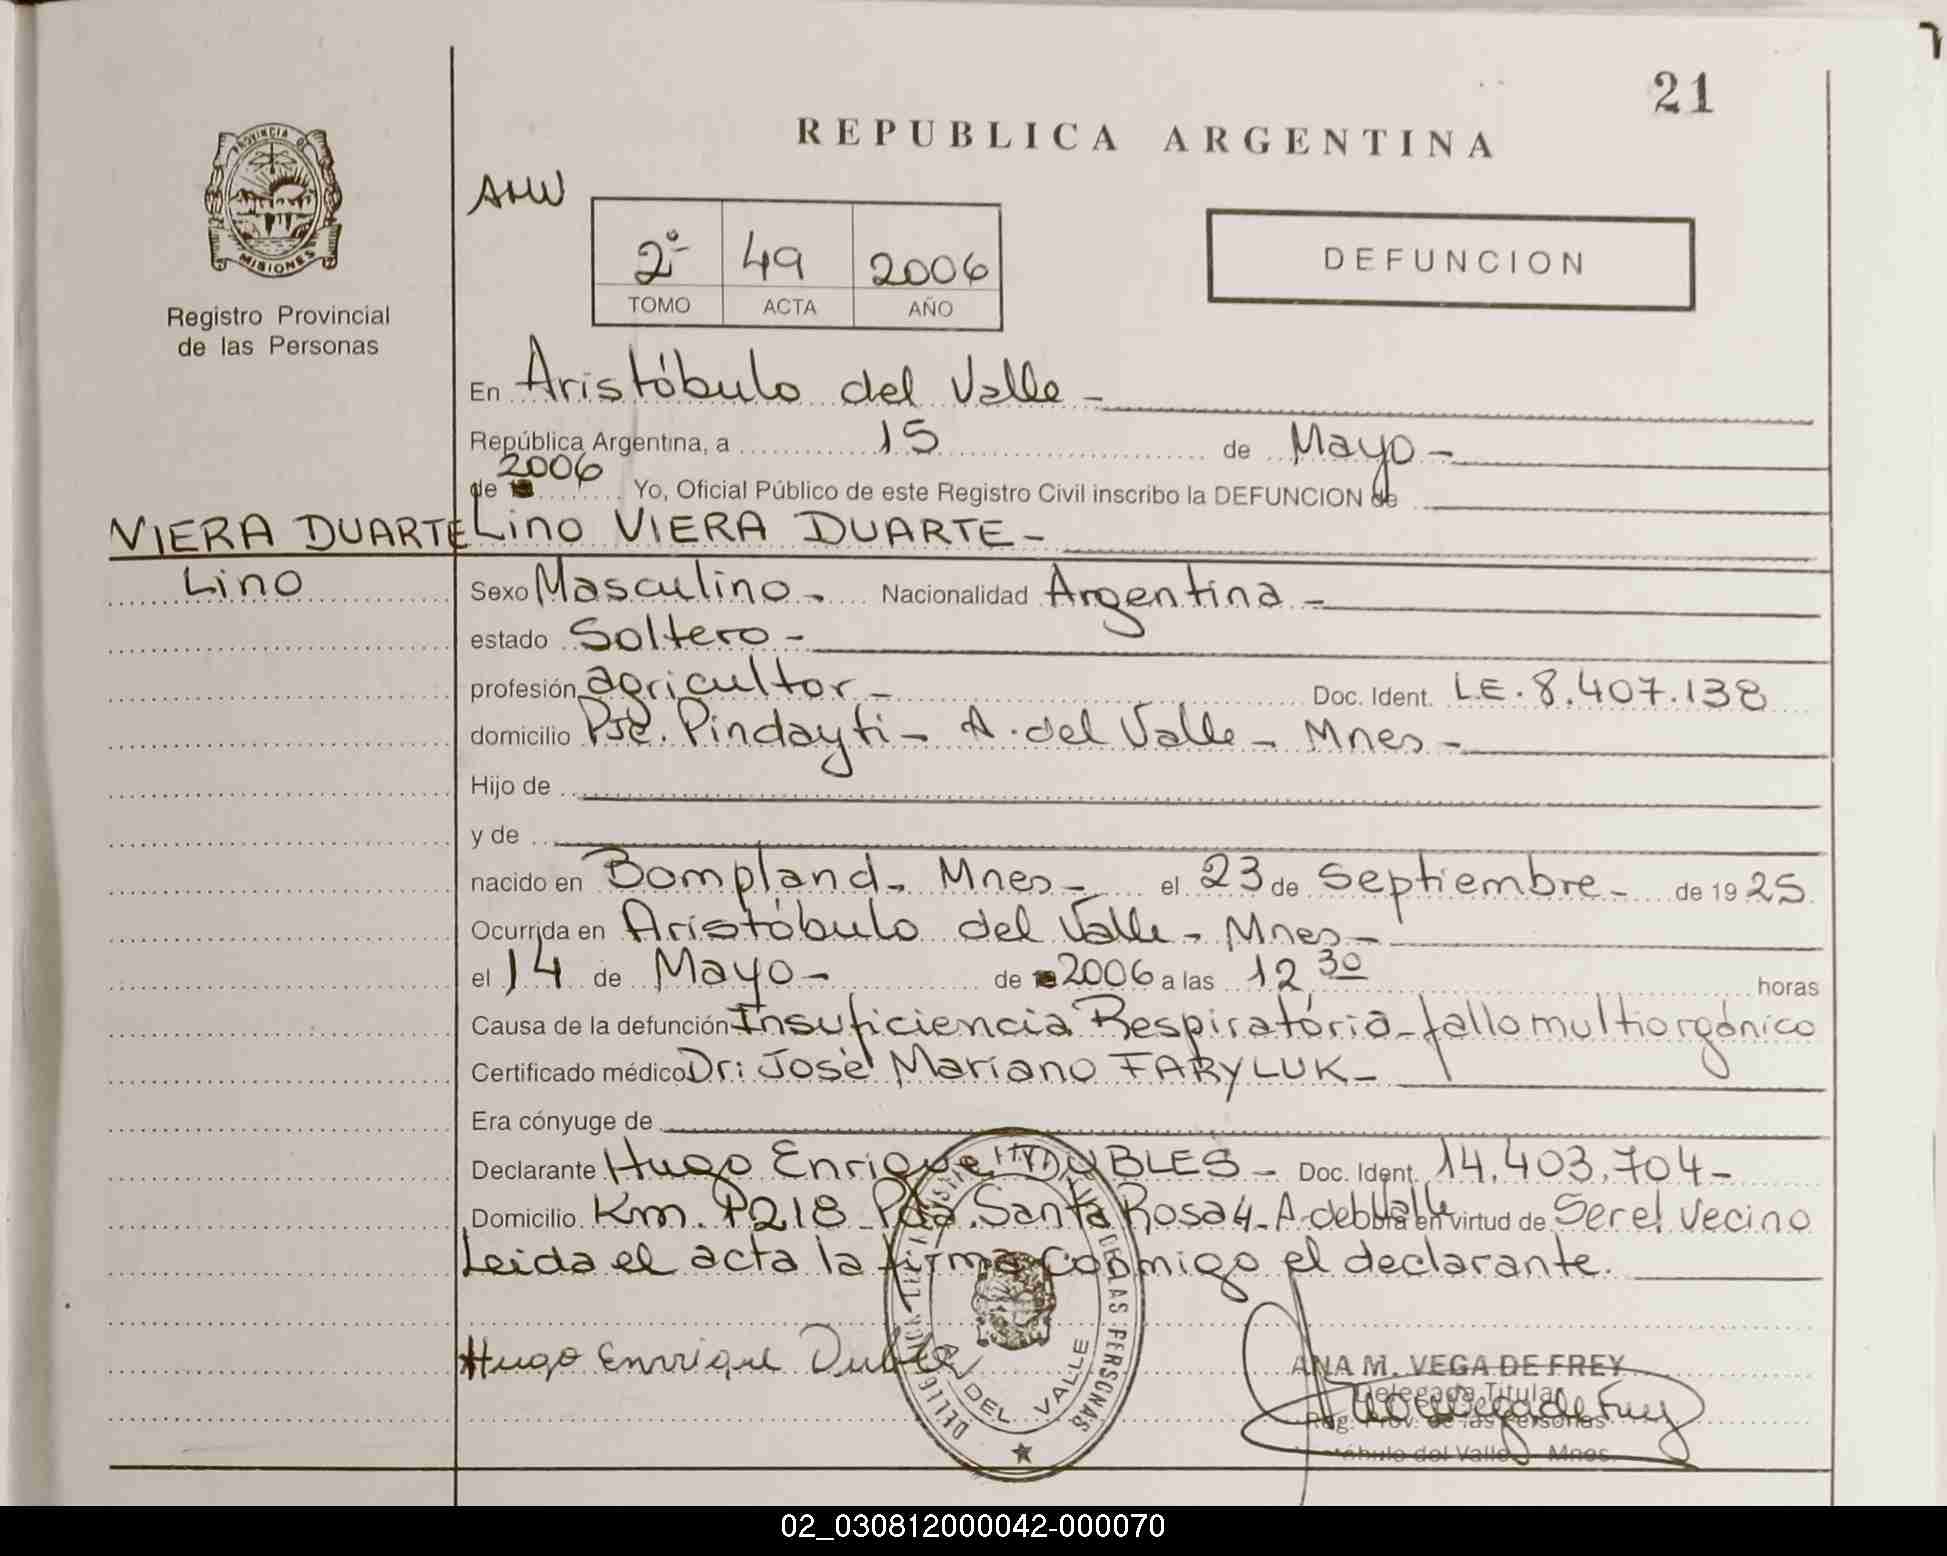 21
REPUBLICA ARGENTINA
PROVINCIA DE
MISIONES
Registro Provincial
de las Personas
2º 49 2006
TOMO ACTA AÑO
DEFUNCION
En Aristóbulo del Valle -
República Argentina, a 15 de Mayo -
de 2006 Yo, Oficial Público de este Registro Civil inscribo la DEFUNCION de
VIERA DUARTE Lino VIERA DUARTE -
Lino
Sexo Masculino - Nacionalidad Argentina -
estado Soltero -
profesión agricultor - Doc. Ident. L.E. 8.407.138
domicilio Pje. Pindayti - A. del Valle - Mnes -
Hijo de
y de
nacido en Bompland - Mnes - el 23 de Septiembre - de 19 25
Ocurrida en Aristóbulo del Valle - Mnes -
el 14 de Mayo - de 2006 a las 12 30 horas
Causa de la defunción Insuficiencia Respiratória - fallo multiorgánico
Certificado médico Dr: José Mariano FARYLUK -
Era cónyuge de
Declarante Hugo Enrique DUBLES - Doc. Ident. 14.403.704 -
Domicilio Km. 1218 - Pda. Santa Rosa 4 - A. del Valle en virtud de Ser el vecino
Leida el acta la firma conmigo el declarante.
Hugo Enrrique
DEL VALLE
DE LAS PERSONAS
ANA M. VEGA DE FREY
Delegada Titular
Reg. Prov. de las Personas
Aristóbulo del Valle - Mnes.
02_030812000042-000070